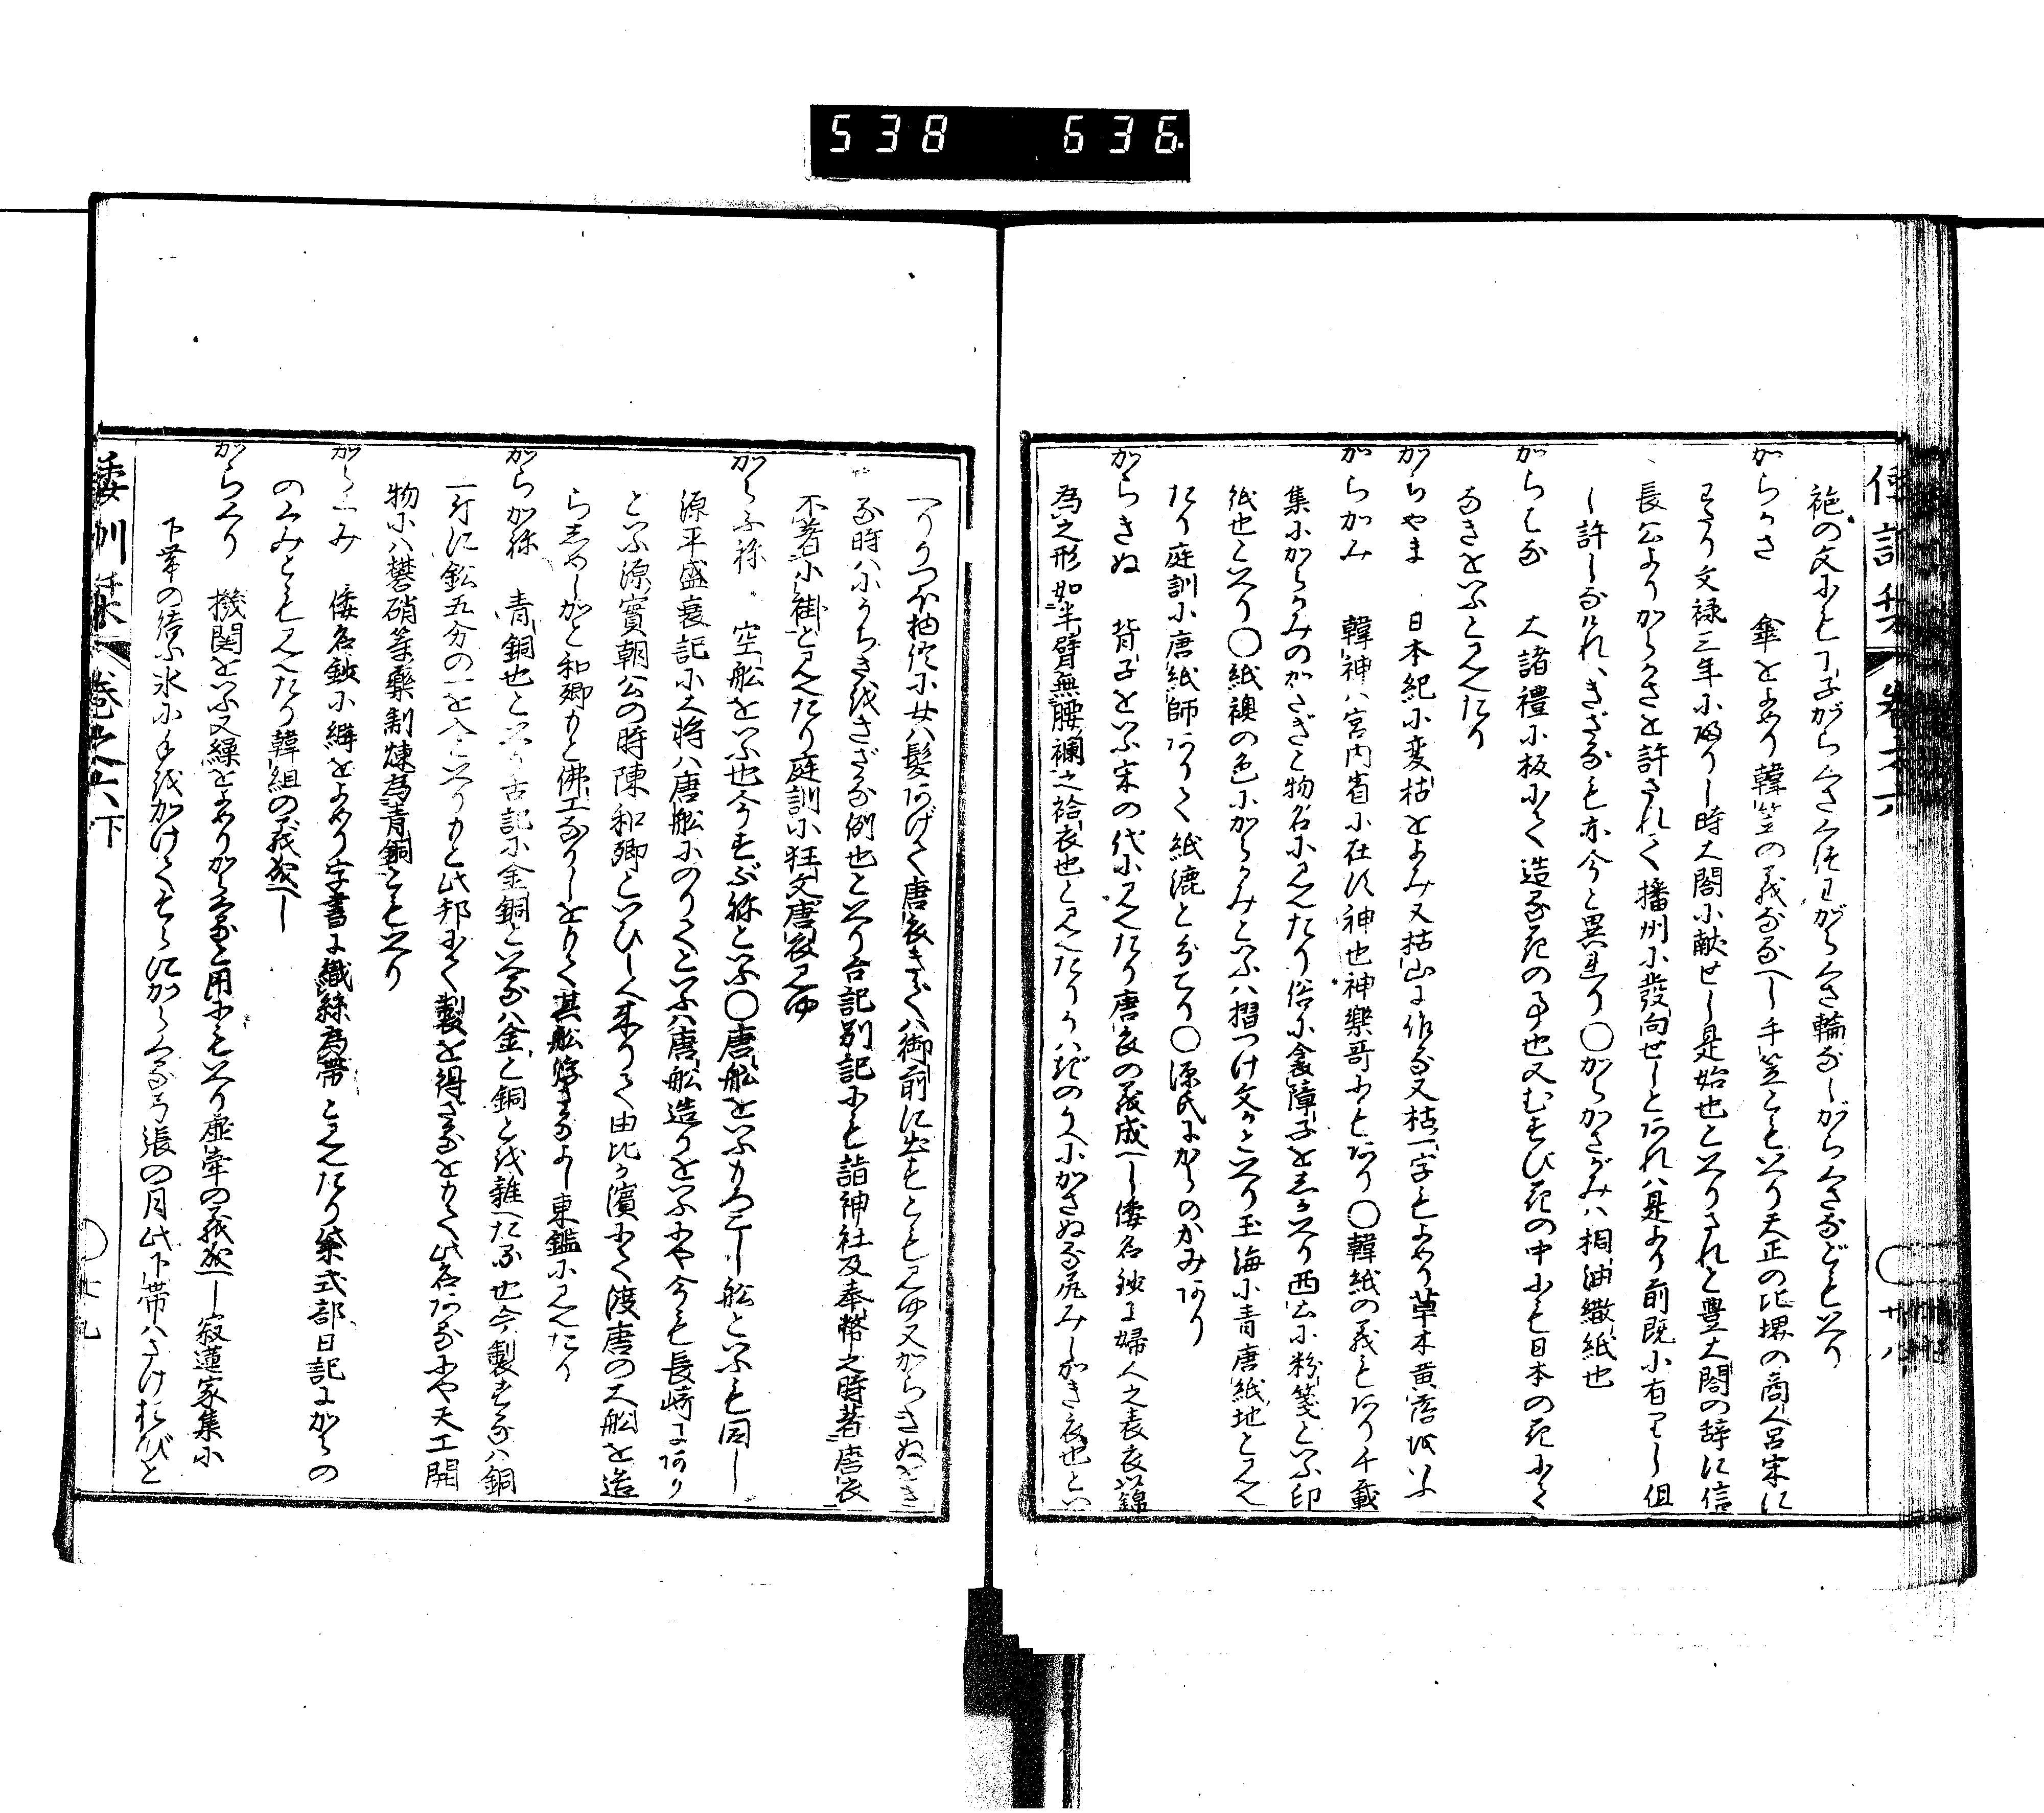 538 636
倭訓栞 巻之六 ○廿八
袍の文にも丁子がらくさくはじがらくさ輪なしがらくさなどもいへり
からかさ 傘をよめり韓笠の義なるへし手笠ともいへり天正の比堺の商人呂宋に
わたり文禄三年に帰りし時大閤に献せし是始也といへりされと豊大閤の辞に信
長公よりからかさを許されて播州に發向せしとあれハ是より前既に有りし但
し許しなけれハきざるも亦今と異れり○からかさがみハ桐油繖紙也
からはな 大諸禮に板にて造る花の事也又むすび花の中にも日本の花にて
なきをいふとみえたり
からやま 日本紀に変枯をよみ又枯山に作る又枯一字もよめり草木黄落をいふ
からかみ 韓神ハ宮内省に在す神也神樂哥にもあり○韓紙の義もあり千載
集にからかみのかさぎと物名にみえたり俗に衾障子をしかいへり西土に粉箋といふ印
紙也といへり○紙襖の色にからかみといふハ摺つけ文かといへり玉海に青唐紙地とみえ
たり庭訓に唐紙師ありて紙漉と分てり○源氏にからのかみあり
からきぬ 背子をいふ宋の代にみえたり唐衣の義成へし倭名鈔に婦人之表衣以錦
為之形如半臂無腰襴之袷衣也とみえたりうハぎのうへにかさぬる尻みしかき衣也とい
へりうつほ物語に女ハ髪あげて唐衣きてハ御前に出すともみゆ又からきぬをき
る時ハ小うちきをきざる例也といへり台記別記にも詣神社及奉幣之時著唐衣
不著小褂とみえたり庭訓に狂文唐衣みゆ
からふね 空船をいふ也今もすぶねといふ○唐船をいふもろこし船といふも同し
源平盛衰記に大将ハ唐船にのりてといふハ唐船造りをいふにや今も長崎にあり
といふ源實朝公の時陳和卿といひし人来りて由比の濱にて渡唐の大船を造
らしめしかと和卿もと佛工なりしをもて其船浮さるよし東鑑にみえたり
からかね 青銅也といへり古記に金銅といへるハ金と銅とを雜へたる也今製するハ銅
一斤に鉛五分の一を入といへりもと此邦にて製を得ざるをもて此名あるにや天工開
物にハ礬硝等藥制煉為青銅ともいへり
からくみ 倭名鈔に綺をよめり字書に織絲為帶とみえたり紫式部日記にからの
のくみともみえたり韓組の義成へし
からくり 機関をいふ又繰をよめりからくると用にもいへり虚牽の義成へし寂蓮家集に
下葉の結ふ氷に手をかけてもらにからくる弓張の月此下帯ハさけおびと
倭訓栞 巻之六下 ○廿九